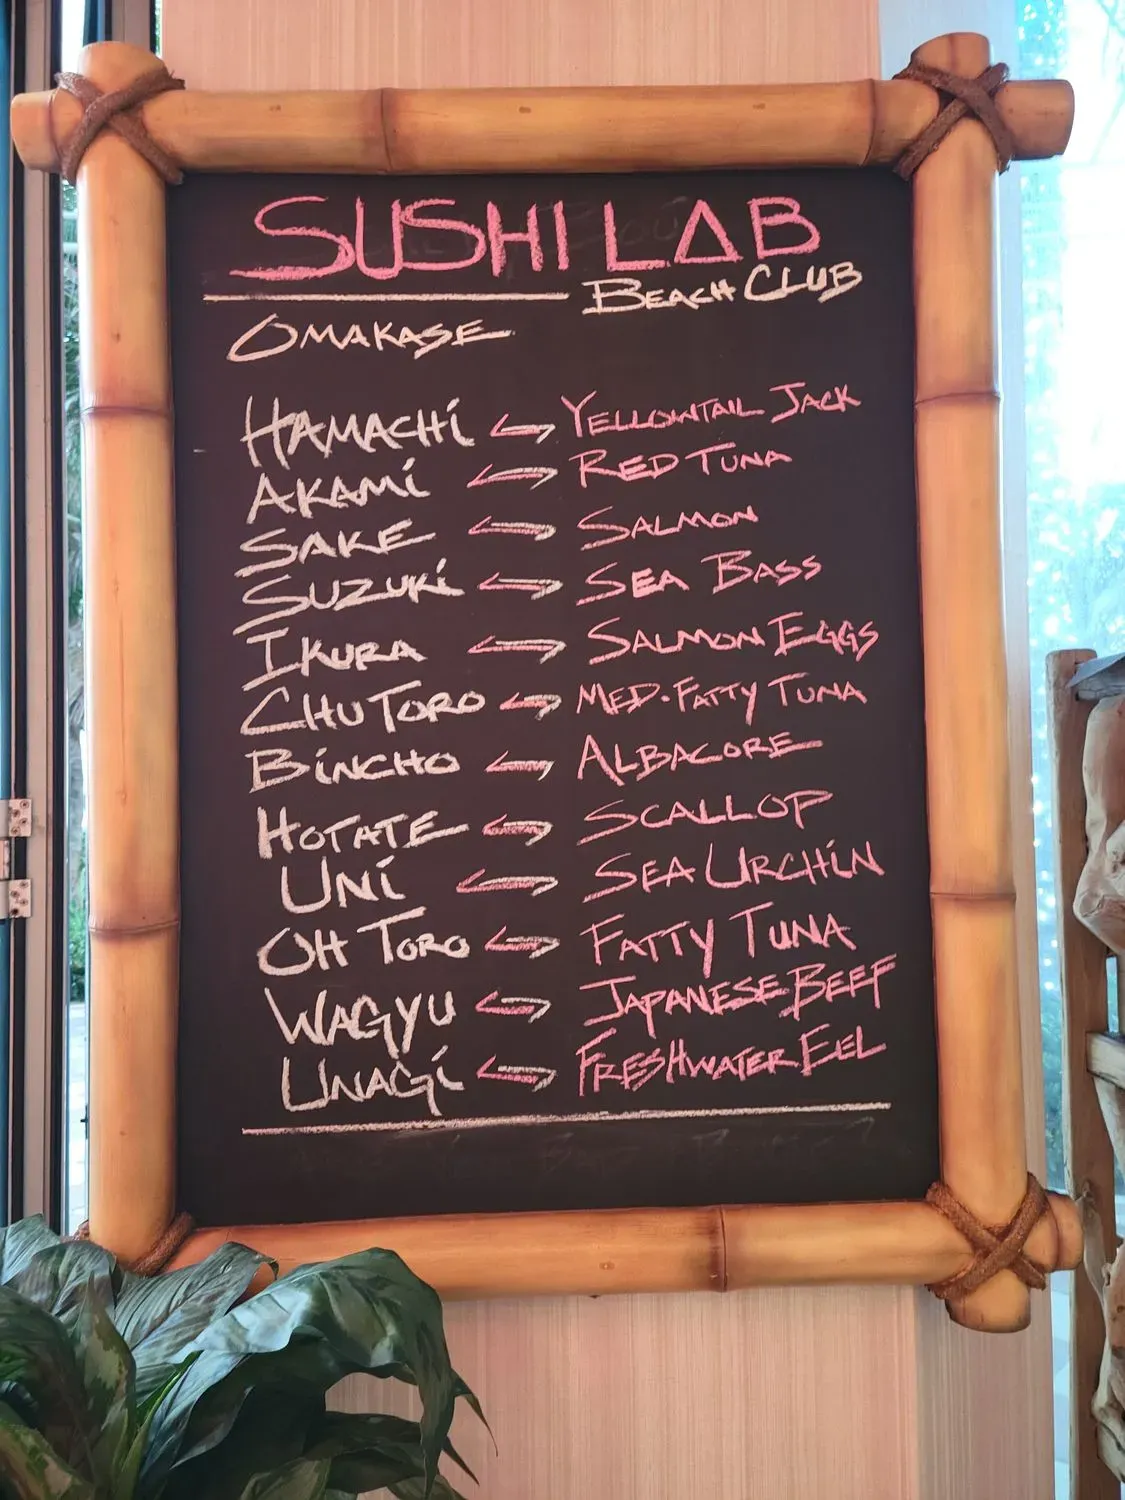 SUSHI LAB
BEACH CLUB
OMAKASE
HAMACHI YELLOWTAIL JACK
AKAMI RED TUNA
SAKE SALMON
SUZUKI SEA BASS
IKURA SALMON EGGS
CHU TORO MED. FATTY TUNA
BINCHO ALBACORE
HOTATE SCALLOP
UNI SEA URCHIN
OH TORO FATTY TUNA
WAGYU JAPANESE BEEF
UNAGI FRESHWATER EEL